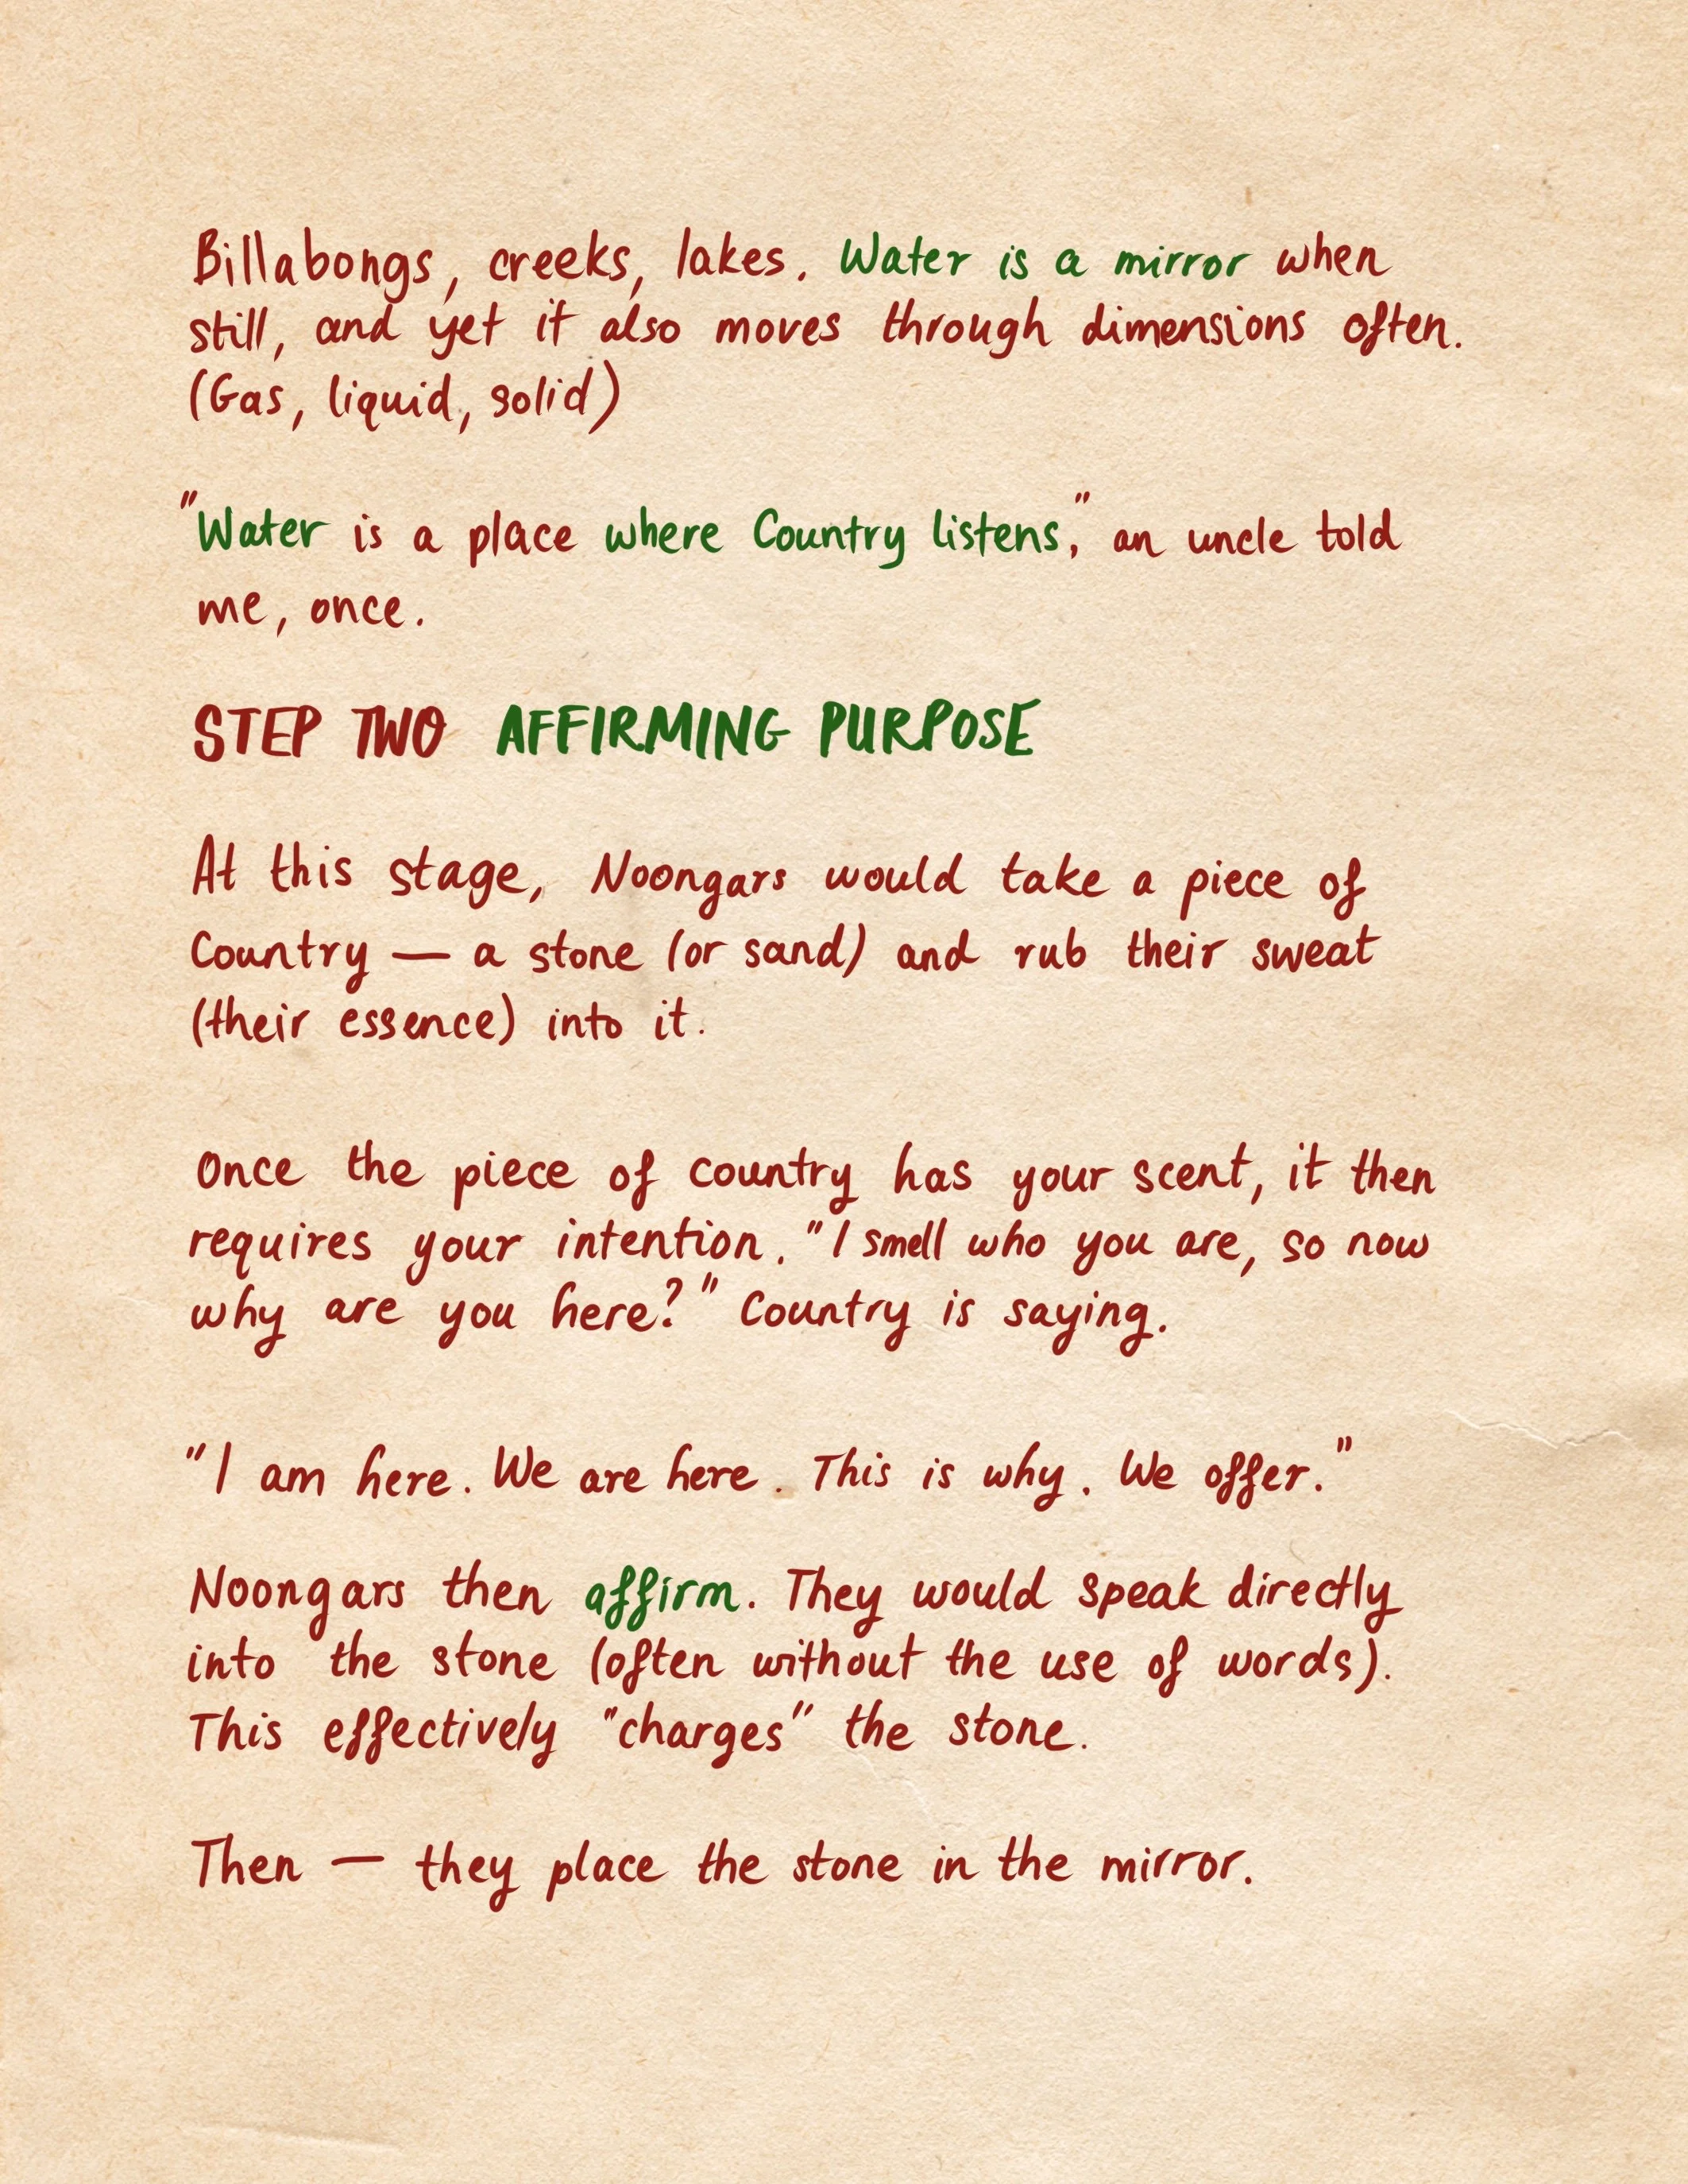 Billabongs, creeks, lakes. Water is a mirror when
still, and yet it also moves through dimensions often.
(Gas, liquid, solid)
"Water is a place where Country listens," an uncle told
me, once.
STEP TWO AFFIRMING PURPOSE
At this stage, Noongars would take a piece of
Country — a stone (or sand) and rub their sweat
(their essence) into it.
Once the piece of Country has your scent, it then
requires your intention. "I smell who you are, so now
why are you here?" Country is saying.
"I am here. We are here. This is why. We offer."
Noongars then affirm. They would speak directly
into the stone (often without the use of words).
This effectively "charges" the stone.
Then — they place the stone in the mirror.